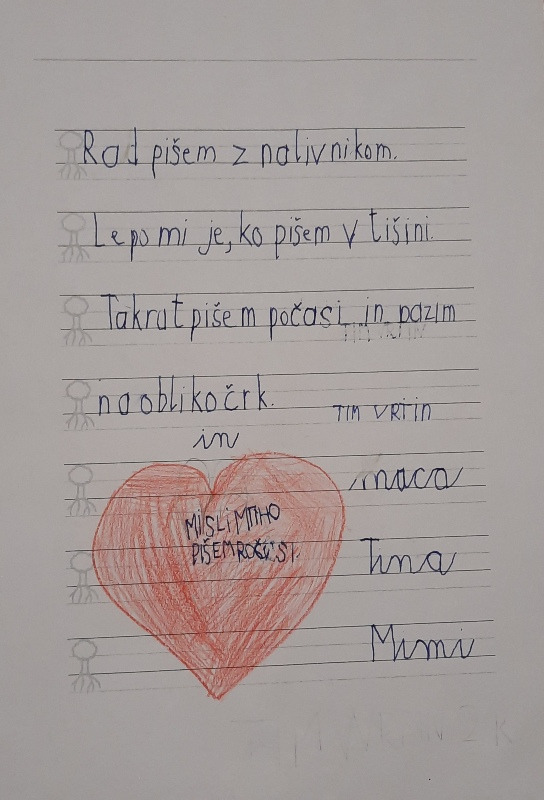 Rad pišem z nalivnikom.
Lepo mi je, ko pišem v tišini.
Takrat pišem počasi in pazim
na obliko črk.
TIM VRTIN
in
maca
MISLIM TIHO
PIŠEM POČASI.
Tina
Mimi